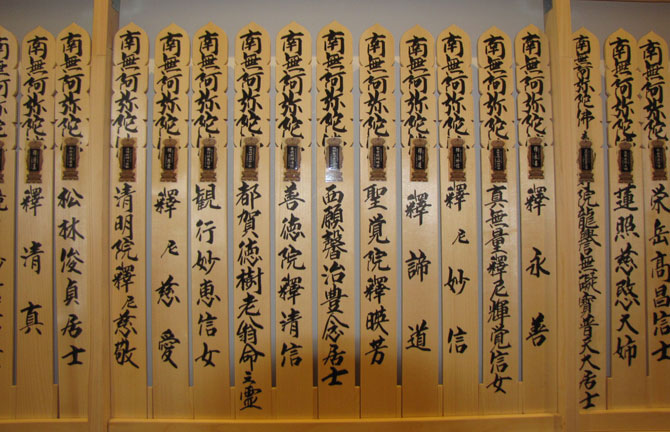 南無阿弥陀 栄岳高昌信士
南無阿弥陀 蓮照慈愍大姉
南無阿弥陀佛 院龍譽無礙
南無阿弥陀 釋永善
南無阿弥陀 真無量釋尼輝覚信女
南無阿弥陀 釋尼妙信
南無阿弥陀 釋諦道
南無阿弥陀 聖覚院釋暁芳
南無阿弥陀 西願馨治豊念居士
南無阿弥陀 善徳院釋清信
南無阿弥陀 都賀徳樹老翁命之霊
南無阿弥陀 観行妙恵信女
南無阿弥陀 釋尼慈愛
南無阿弥陀 清明院釋尼慈敬
南無阿弥陀 松林俊貞居士
南無阿弥陀 釋清真